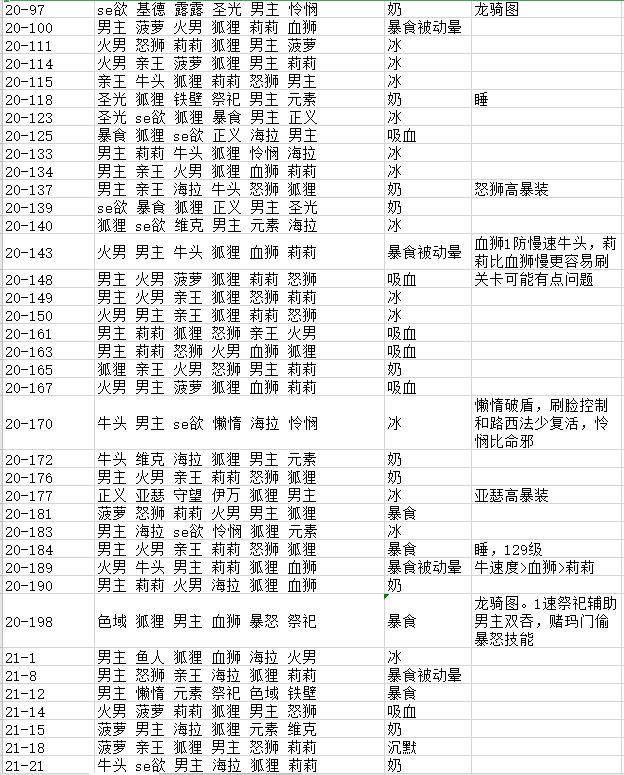 20-97 se欲 基德 露露 圣光 男主 怜悯 奶 龙骑图
20-100 男主 菠萝 火男 狐狸 莉莉 血狮 暴食被动晕
20-111 火男 怒狮 莉莉 狐狸 男主 菠萝 冰
20-114 火男 亲王 菠萝 狐狸 男主 莉莉 冰
20-115 亲王 牛头 狐狸 莉莉 怒狮 男主 冰
20-118 圣光 狐狸 铁壁 祭祀 男主 元素 奶 睡
20-123 圣光 se欲 狐狸 暴食 男主 正义 冰
20-125 暴食 狐狸 se欲 正义 海拉 男主 吸血
20-133 男主 莉莉 牛头 狐狸 怜悯 海拉 冰
20-134 男主 亲王 火男 狐狸 血狮 莉莉 冰
20-137 男主 亲王 海拉 牛头 怒狮 狐狸 奶 怒狮高暴装
20-139 se欲 暴食 狐狸 正义 男主 圣光 奶
20-140 狐狸 se欲 维克 男主 元素 海拉 冰
20-143 火男 男主 牛头 狐狸 血狮 莉莉 暴食被动晕 血狮1防慢速牛头，莉
莉比血狮慢更容易刷
20-148 男主 火男 菠萝 狐狸 莉莉 怒狮 吸血 关卡可能有点问题
20-149 男主 火男 亲王 狐狸 怒狮 莉莉 冰
20-150 火男 男主 亲王 狐狸 莉莉 怒狮 冰
20-161 男主 莉莉 狐狸 怒狮 亲王 火男 吸血
20-163 男主 莉莉 怒狮 火男 血狮 狐狸 吸血
20-165 狐狸 亲王 火男 怒狮 男主 莉莉 奶
20-167 火男 男主 菠萝 狐狸 血狮 莉莉 吸血
20-170 牛头 男主 se欲 懒惰 海拉 怜悯 冰 懒惰破盾，刷脸控制
和路西法少复活，怜
悯比命邪
20-172 牛头 维克 海拉 狐狸 男主 元素 奶
20-176 男主 火男 亲王 莉莉 怒狮 狐狸 奶
20-177 正义 亚瑟 守望 伊万 狐狸 男主 冰 亚瑟高暴装
20-181 菠萝 怒狮 莉莉 火男 男主 狐狸 暴食
20-183 男主 海拉 se欲 怜悯 狐狸 元素 冰
20-184 男主 火男 亲王 莉莉 怒狮 狐狸 暴食 睡，129级
20-189 火男 牛头 男主 莉莉 狐狸 血狮 暴食被动晕 牛速度>血狮>莉莉
20-190 男主 莉莉 火男 海拉 狐狸 血狮 奶
20-198 色域 狐狸 男主 血狮 暴怒 祭祀 暴食 龙骑图。1速祭祀辅助
男主双吞，赌玛门偷
暴怒技能
21-1 男主 鱼人 狐狸 血狮 海拉 火男 冰
21-8 男主 怒狮 亲王 海拉 狐狸 莉莉 暴食被动晕
21-12 男主 懒惰 元素 祭祀 色域 铁壁 暴食
21-14 火男 菠萝 莉莉 狐狸 男主 怒狮 吸血
21-15 菠萝 男主 海拉 狐狸 元素 维克 奶
21-18 菠萝 亲王 狐狸 男主 怒狮 莉莉 沉默
21-21 牛头 se欲 男主 海拉 狐狸 莉莉 奶